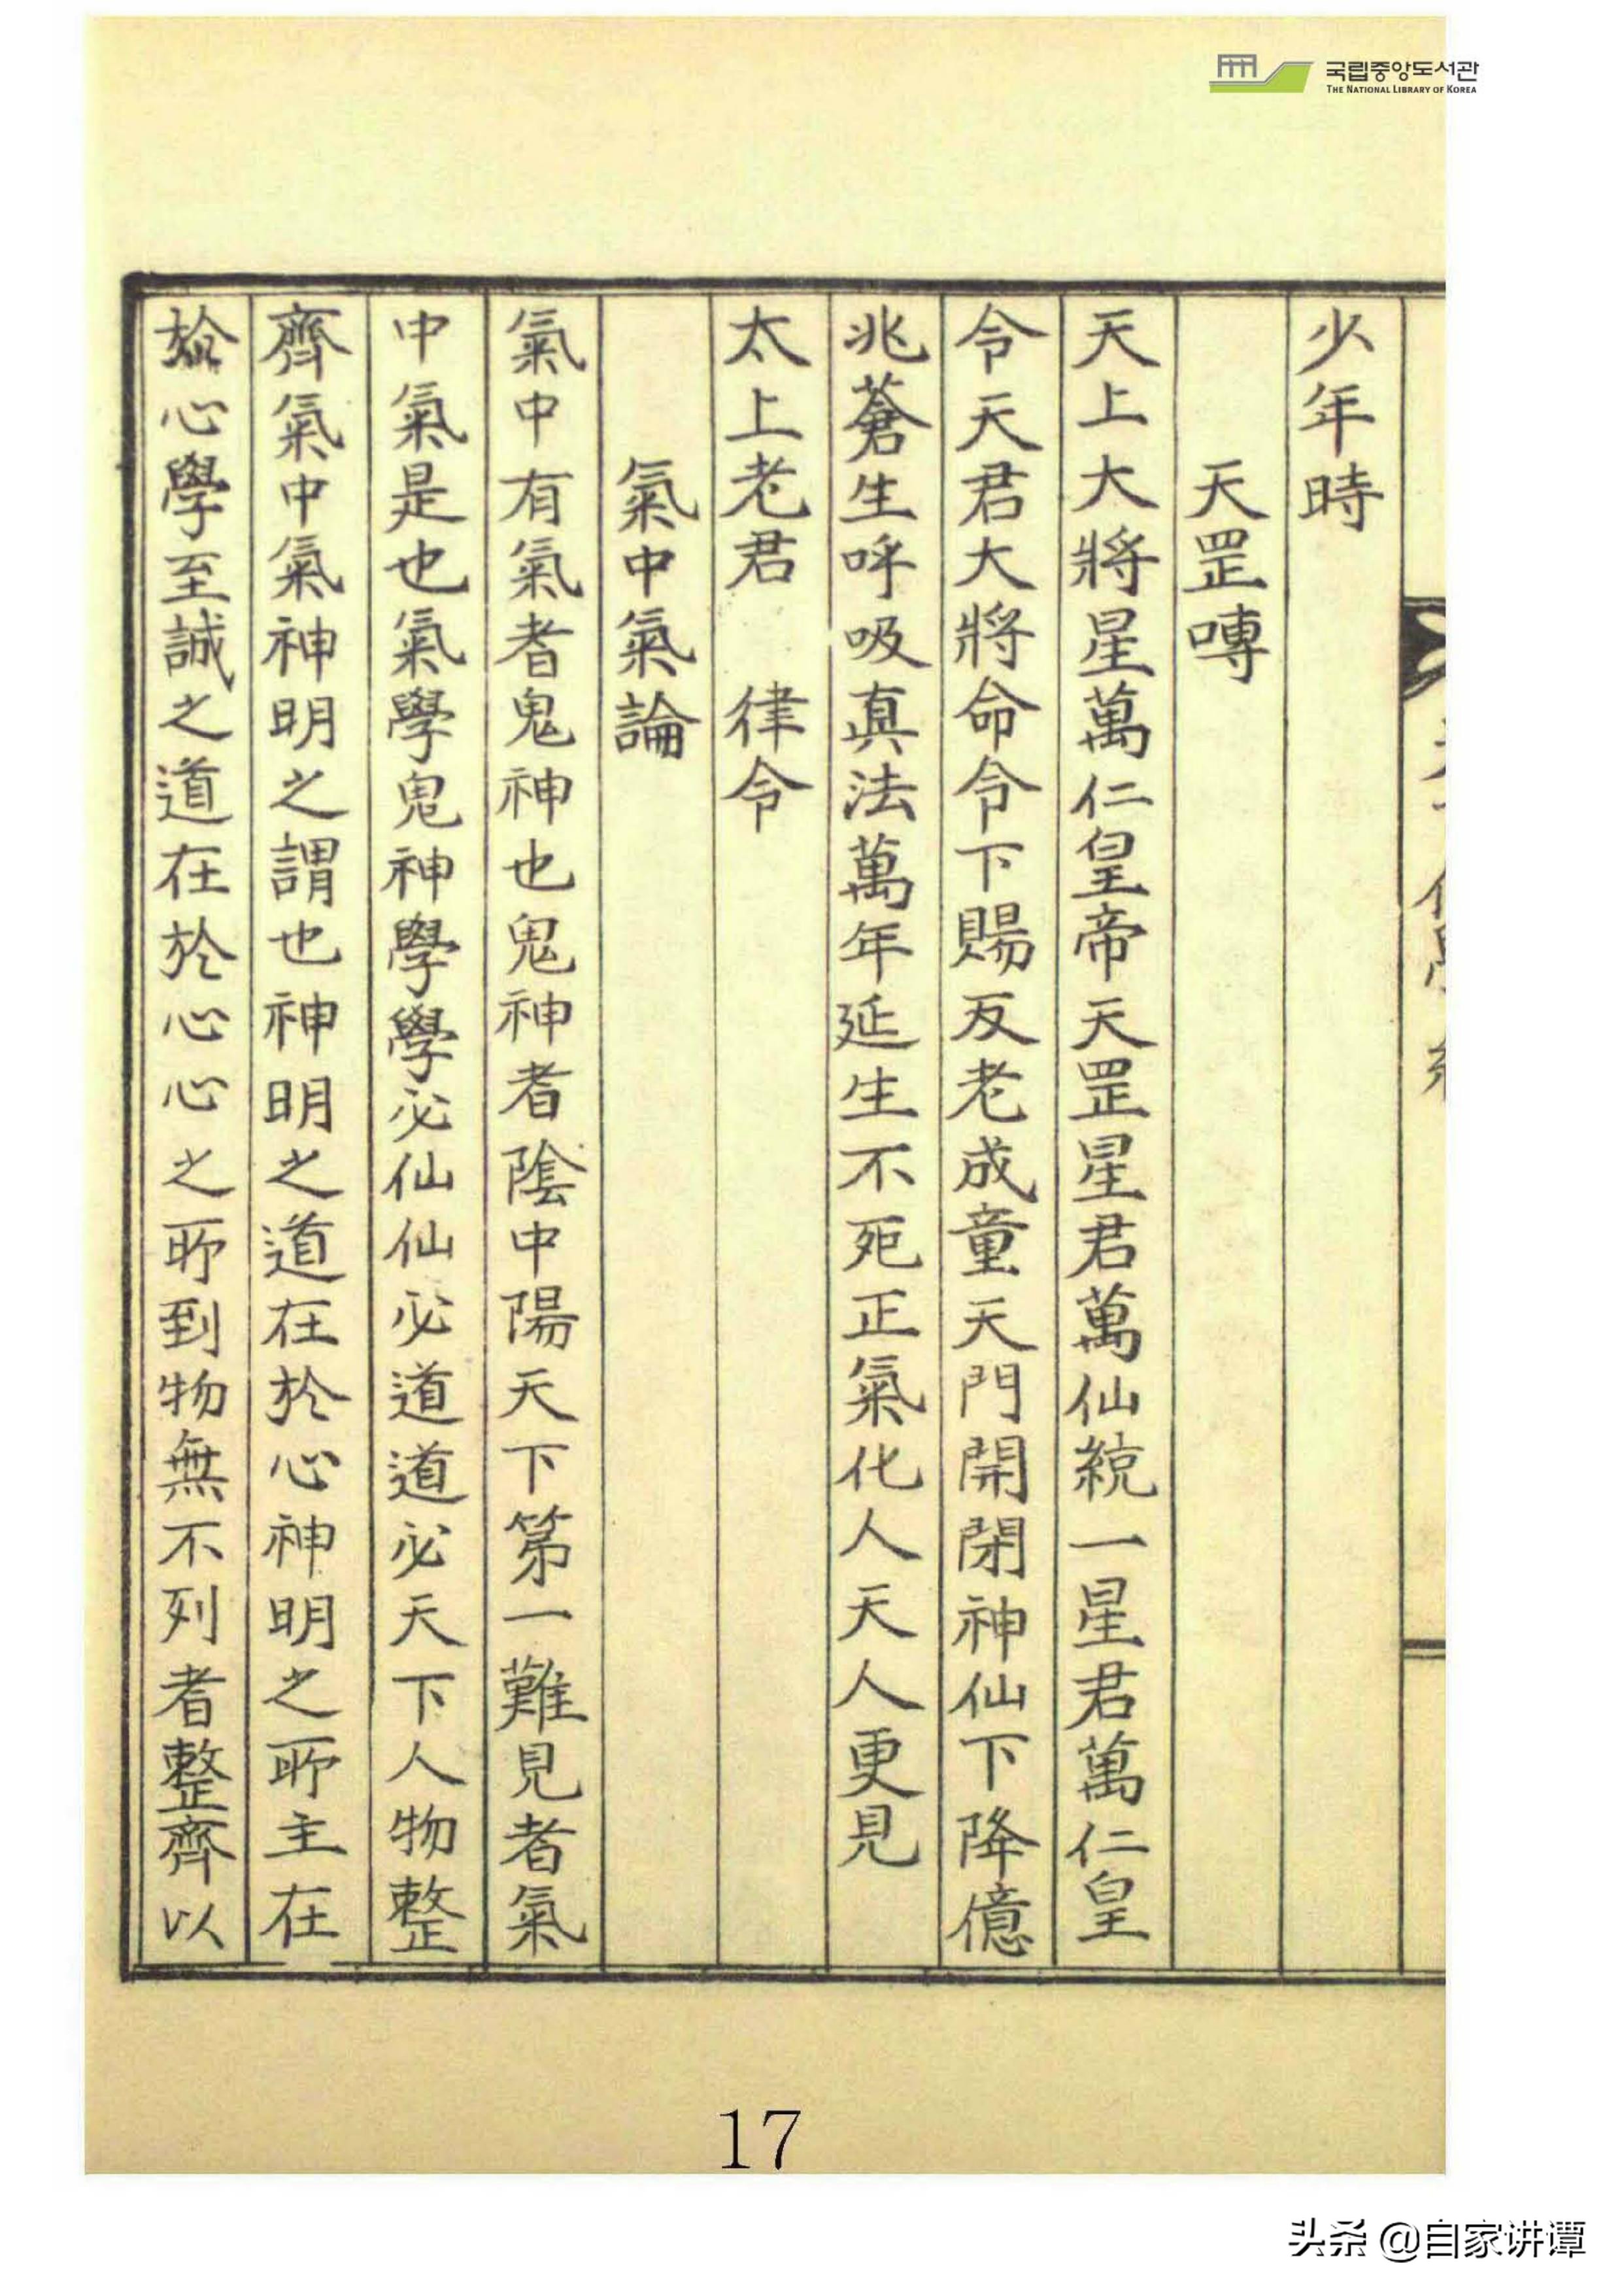 국립중앙도서관
THE NATIONAL LIBRARY OF KOREA
少年時
天罡嚩
天上大將星萬仁皇帝天罡星君萬仙統一星君萬仁皇
令天君大將命令下賜反老成童天門開閉神仙下降億
兆蒼生呼吸眞法萬年延生不死正氣化人天人更見
太上老君 律令
氣中氣論
氣中有氣者鬼神也鬼神者陰中陽天下第一難見者氣
中氣是也氣學鬼神學學必仙仙必道道必天下人物整
齊氣中氣神明之謂也神明之道在於心神明之所主在
於心學至誠之道在於心心之所到物無不列者整齊以
17
头条 @自家讲谭